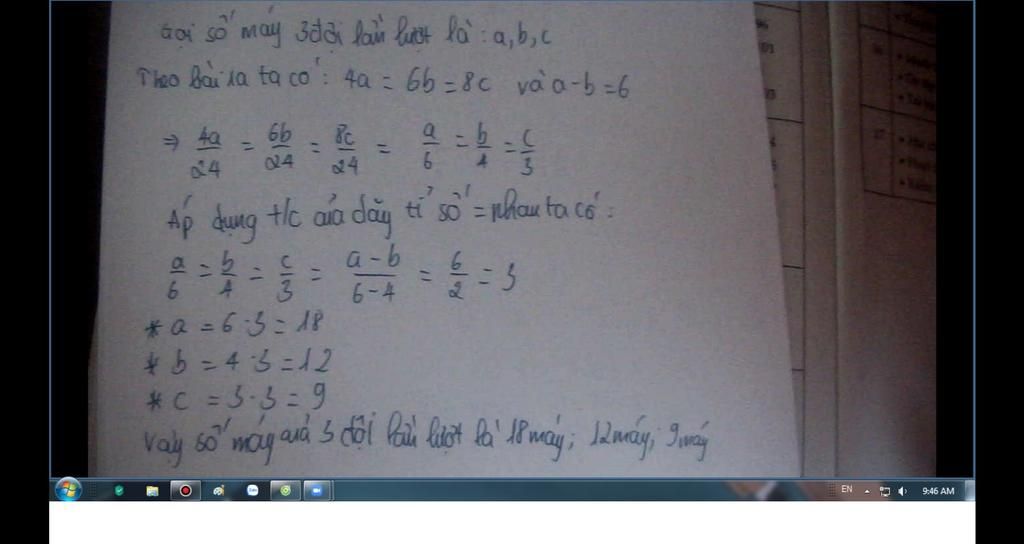 Gọi số máy 3 đội lần lượt là : a, b, c
Theo bài ra ta có : 4a = 6b = 8c và a - b = 6
⇒ 4a/24 = 6b/24 = 8c/24 = a/6 = b/4 = c/3
Áp dụng t/c của dãy tỉ số = nhau ta có :
a/6 = b/4 = c/3 = a - b/6 - 4 = 6/2 = 3
* a = 6 · 3 = 18
* b = 4 · 3 = 12
* c = 3 · 3 = 9
Vậy số máy của 3 đội lần lượt là 18 máy; 12 máy; 9 máy
EN
9:46 AM